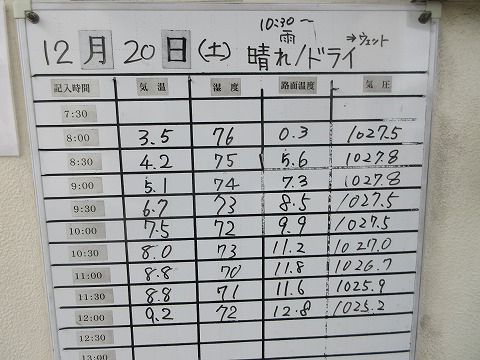 10:30〜
雨 →ウェット
12月20日(土) 晴れ/ドライ
記入時間 気温 湿度 路面温度 気圧
7:30
8:00 3.5 76 0.3 1027.5
8:30 4.2 75 5.6 1027.8
9:00 5.1 74 7.3 1027.8
9:30 6.7 73 8.5 1027.5
10:00 7.5 72 9.9 1027.5
10:30 8.0 73 11.2 1027.0
11:00 8.8 70 11.8 1026.7
11:30 8.8 71 11.6 1025.9
12:00 9.2 72 12.8 1025.2
12:30
13:00